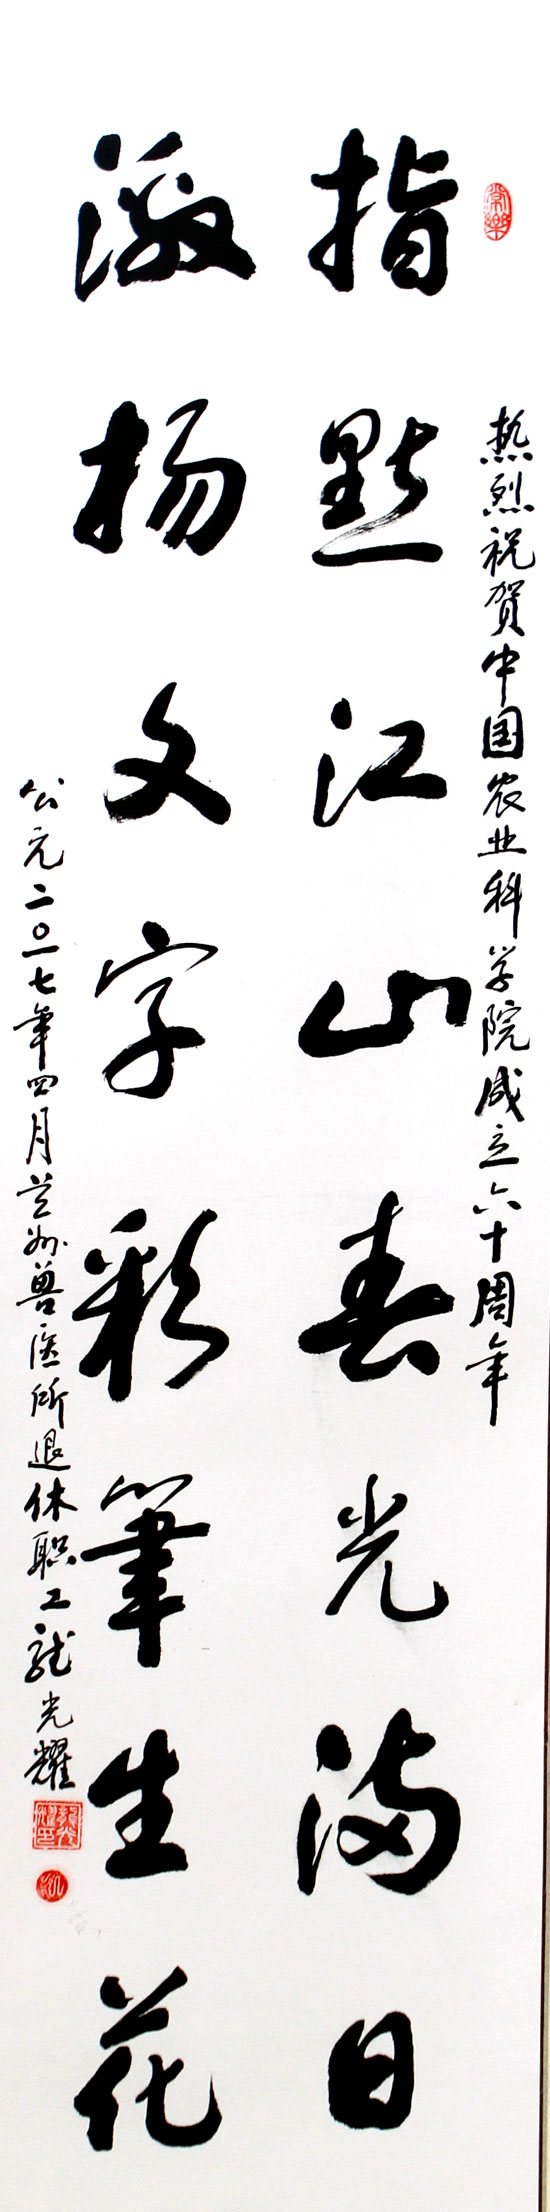 热烈祝贺中国农业科学院成立六十周年
指點江山春光满日
激扬文字彩筆生花
公元二〇一七年四月兰州兽医所退休职工龙光耀